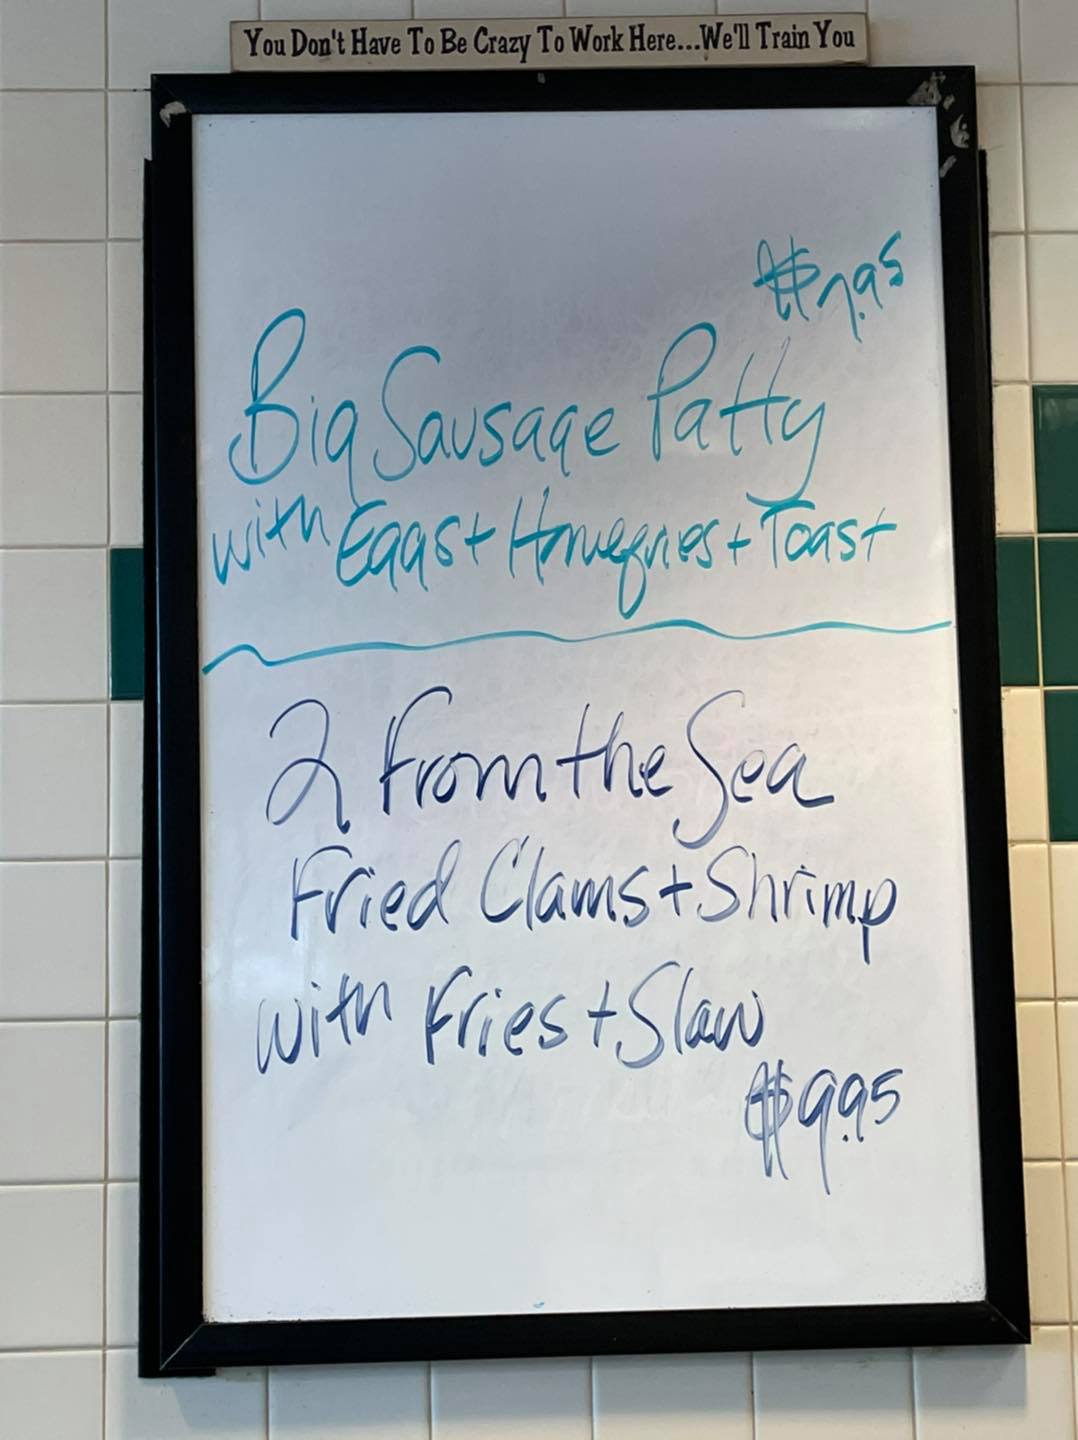 You Don't Have To Be Crazy To Work Here...We'll Train You
$7.95
Big Sausage Patty
with Eggs + Homefries + Toast
2 From the Sea
Fried Clams + Shrimp
with Fries + Slaw
$9.95